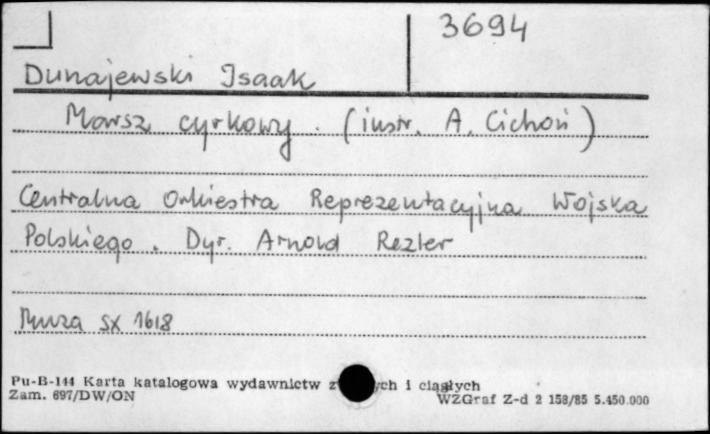 3694
Dunajewski Isaak
Marsz cyrkowy. (instr. A. Cichoń)
Centralna Orkiestra Reprezentacyjna Wojska
Polskiego. Dyr. Arnold Rezler
Muza SX 1618
Pu-B-144 Karta katalogowa wydawnictw z ych i ciągłych
Zam. 697/DW/ON
WZGraf Z-d 2 158/85 5.450.000